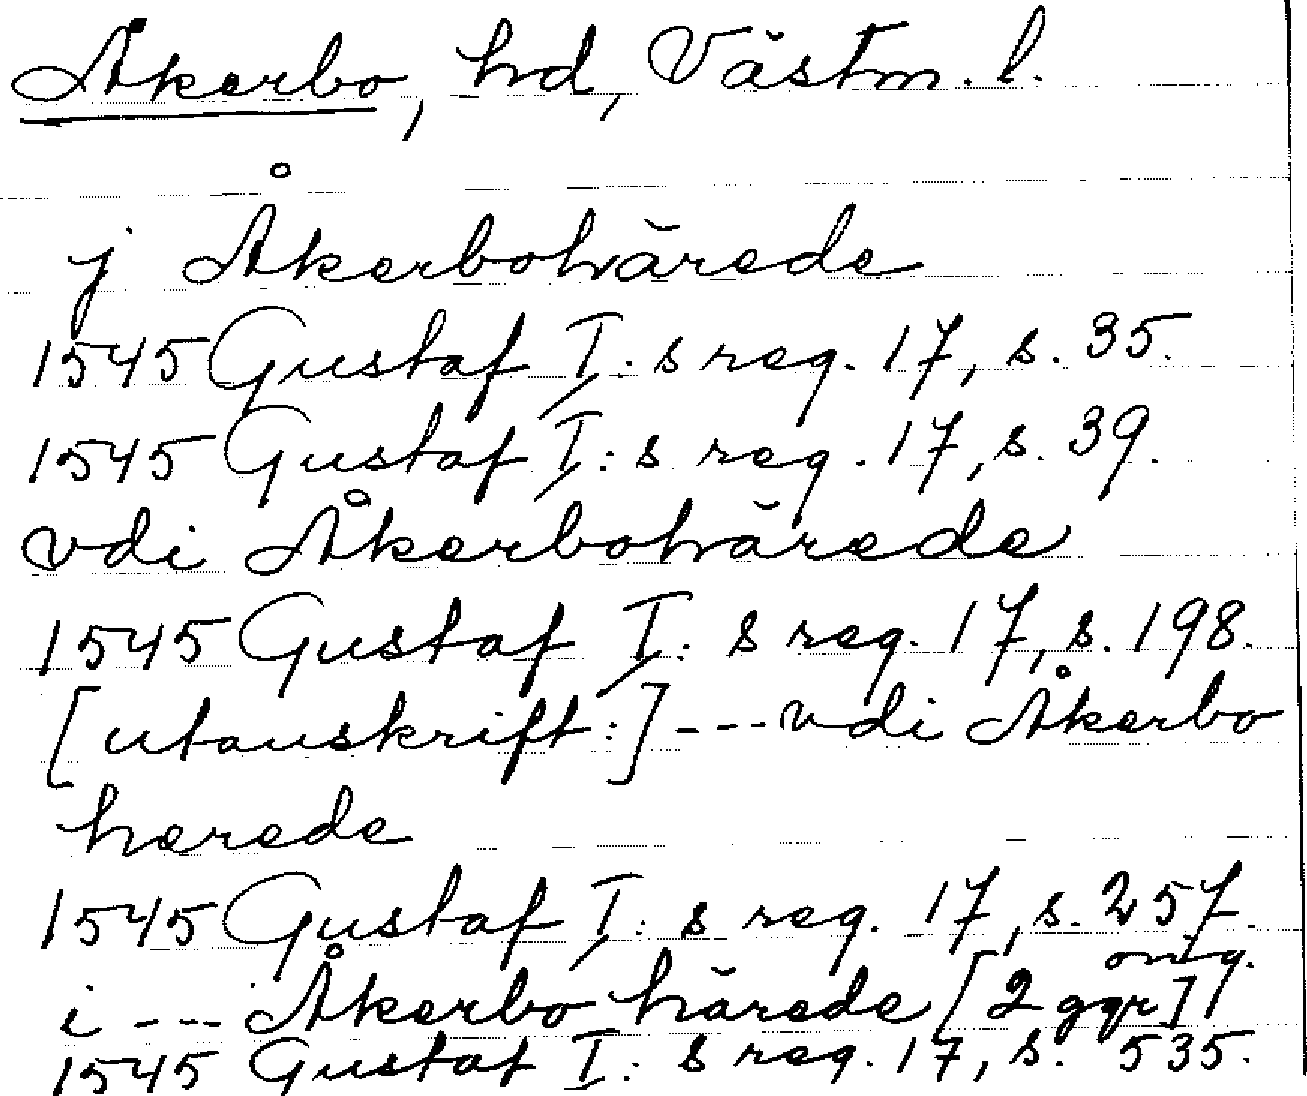 Åkerbo, hd, Västm. l.
j Åkerbohärede
1545 Gustaf I: s reg. 17, s. 35.
1545 Gustaf I: s reg. 17, s. 39.
vdi Åkerbohärede
1545 Gustaf I: s reg. 17, s. 198.
[utanskrift:] --- vdi Åkerbo
herede
1545 Gustaf I: s reg. 17, s. 257.
omg.
i --- Åkerbo härede [2 ggr]
1545 Gustaf I: s reg. 17, s. 535.